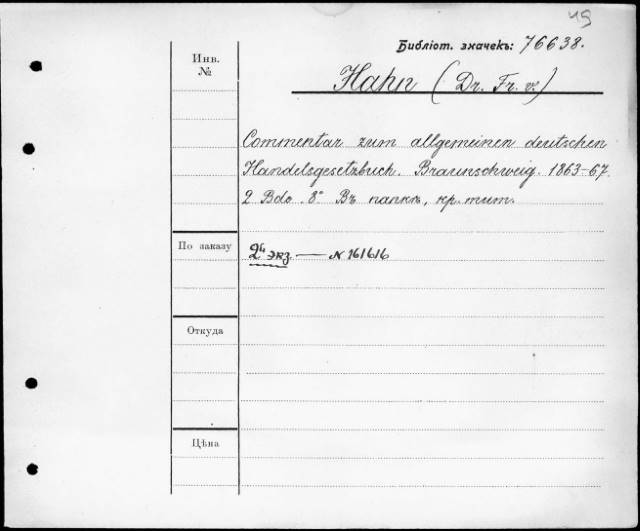 49
Библіот. значекъ: 76638.
Инв.
№
Hahn (Dr. Fr. v.)
Commentar zum allgemeinen deutschen
Handelsgesetzbuch. Braunschweig. 1863-67.
2 Bde. 8° Въ папкѣ, кр. тит.
По заказу
2й экз — N 161616
Откуда
Цѣна